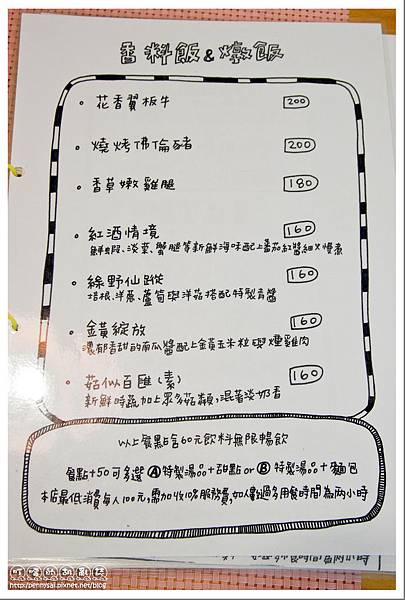 香料飯&燉飯
花香翼板牛 200
燒烤佛倫豬 200
香草嫩雞腿 180
紅酒情境 160
鮮蝦、淡菜、蟹腿等新鮮海味配上番茄紅醬細火慢煮
綠野仙蹤 160
培根、洋蔥、蘆筍與洋菇搭配特製青醬
金黃綻放 160
濃郁香甜的南瓜醬配上金黃玉米粒與燻雞肉
菇似百匯(素) 160
新鮮時蔬加上眾多菇類,混著淡奶香
以上餐點含60元飲料無限暢飲
餐點+50可多選Ⓐ特製湯品+甜點orⒷ特製湯品+麵包
本店最低消費每人100元,需加收10%服務費,如人數過多用餐時間為兩小時
叮噹的胡亂誌
http://pennysal.pixnet.net/blog